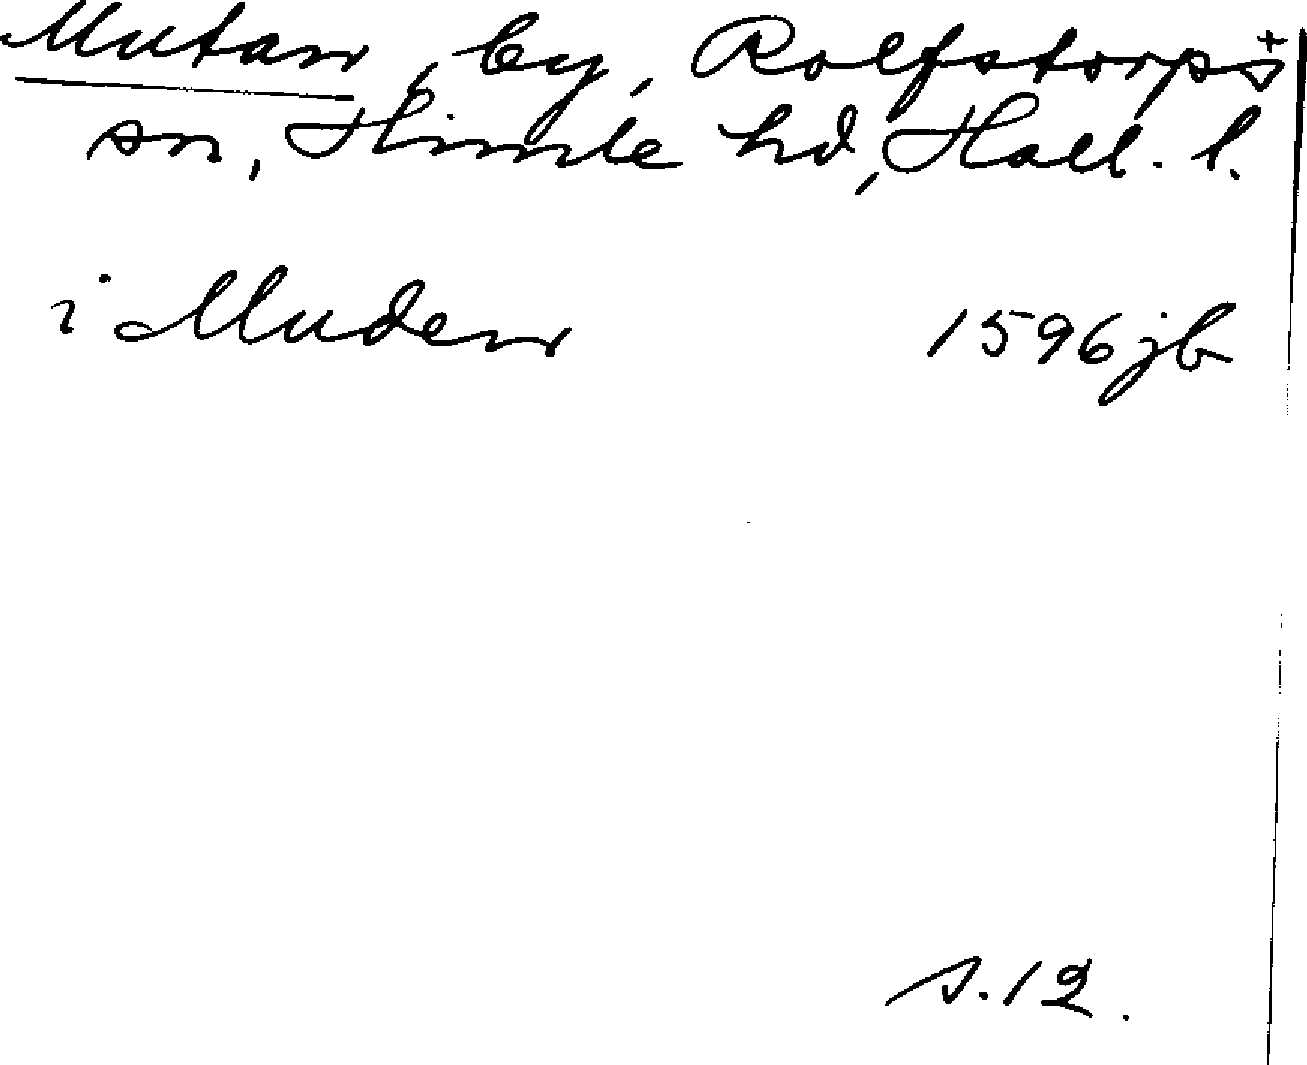 Mutan, by, Rolfstorps +
sn, Himle hd, Hall. l.
i Muden 1596 jb
s. 12.